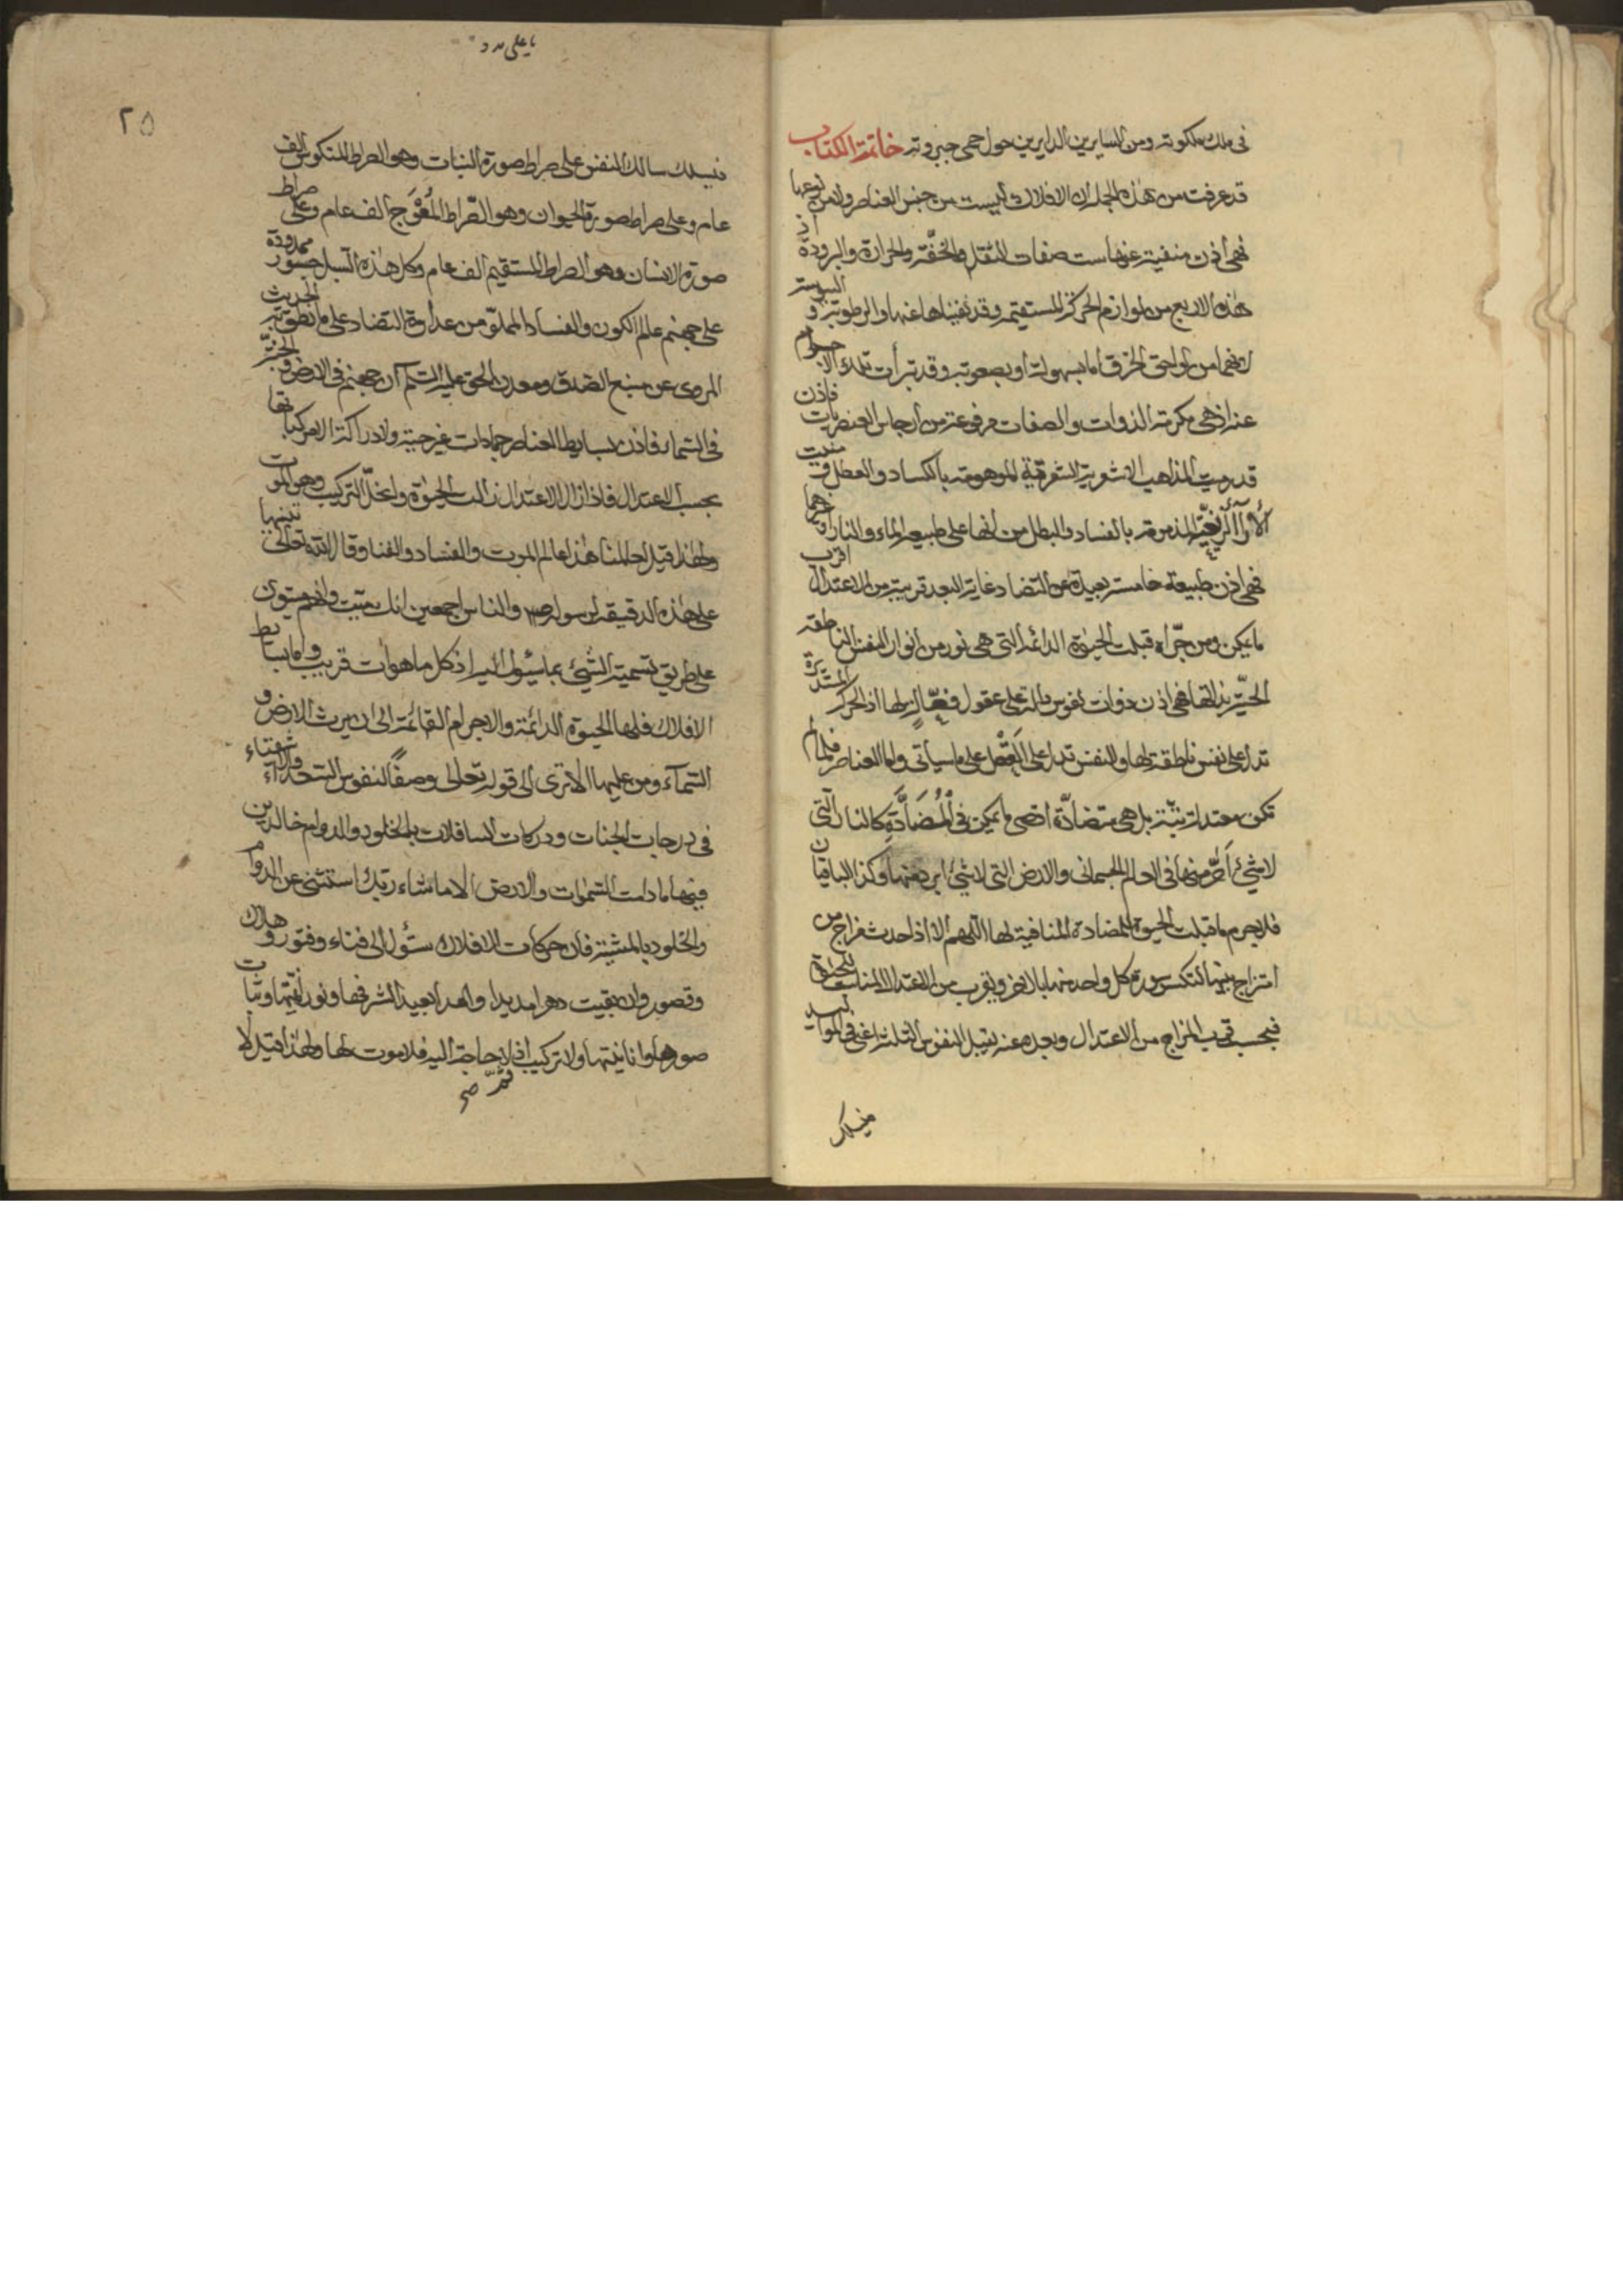 في ملك ملكوته ومن السايرين الدايرين حول حمى جبروته خاتمة الكتاب
قد عرفت من هذه الجمل ان الافلاك ليست من جنس العناصر ولا من نوعها
فهي اذن منفية عنها ست صفات الثقل والخفة والحرارة والبرودة اذ
هذه الاربع من لوازم الحركة المستقيمة وقد نفيناها عنها والرطوبة و اليبوسة
لانهما من لواحق الخرق اما بسهولة او بصعوبة وقد تبرأت تلك الاجرام
عنه اذ هي مكرمة الذوات والصفات مرفوعة من ارجاس العنصريات فاذن
قد رميت المذاهب الثنوية بالكساد والعطل و
المذمومة بالفساد والبطل من انها على طبيعة الماء والنار او غيرهما
فهي اذن طبيعة خامسة بعيدة عن التضاد غاية البعد قريبة من الاعتدال اقرب
ما يمكن ومن جراه قبلت الحيوة الدائمة التي هي نور من انوار النفس الناطقة
الحية بذاتها فهي اذن ذوات نفوس دالة على عقول فعالة لها اذ الحركة المستديرة
تدل على نفس ناطقة لها والنفس تدل على العقل على ما سيأتي واما العناصر فلما لم
تكن معتدلة بل هي متضادة اقصى ما يمكن في المضادة كالنار التي
لا شيء احر منها في العالم الجسماني والارض التي لا شيء ابرد منها وكذا الباقيان
فلا جرم ما قبلت الحيوة للمضادة المنافية لها اللهم الا اذا حدث مزاج من
امتزاج بينها لتكسر سورة كل واحد منها بالاخر ويقرب من الاعتدال المناسب للحيوة
فبحسب قرب المزاج من الاعتدال وبعده عنه يقبل النفوس الثلثة اعني في المواليد
فيسلك
يا علي مدد
٢٥
فيسلك سالك النفس على صراط صورة النبات وهو الصراط المنكوس الف
عام وعلى صراط صورة الحيوان وهو الصراط المعوج الف عام وعلى صراط
صورة الانسان وهو الصراط المستقيم الف عام وكل هذه السبل جسور ممدودة
على جهنم عالم الكون والفساد المملو من عداوة التضاد على ما نطق به الحديث
المروي عن منبع الصدق ومعدن الحق عليه السلم ان جهنم في الارض و الجنة
في السماء فاذن بسايط العناصر جمادات غير حية ولا دراكة الا مركباتها
بحسب الاعتدال فاذا زال الاعتدال زالت الحيوة وانحل التركيب وهو الموت
ولهذا قيل لعالمنا هذا عالم الموت والفساد والفنا وقال الله تعالى تنبيها
على هذه الدقيقة لرسوله ص والناس اجمعين انك ميت وانهم ميتون
على طريق تسمية الشيء بما يئول اليه اذ كل ما هو آت قريب واما بسايط
الافلاك فلها الحيوة الدائمة والاجرام القائمة الى ان يرث الارض و
السماء ومن عليها الا ترى الى قوله تعالى وصفا لنفوس السعداء والاشقياء
في درجات الجنات ودركات السافلات بالخلود والدوام خالدين
فيها ما دامت السموات والارض الا ما شاء ربك استثنى عن الدوام
والخلود بالمشية فان حركات الافلاك ستؤل الى فناء وفتور وهلاك
وقصور وان بقيت دهرا مديدا وامدا بعيدا لشرفها ونورانيتها وثبات
صورها وانانيتها ولا تركيب اذ لا حاجة اليه فلا موت لها ولهذا قيل لا